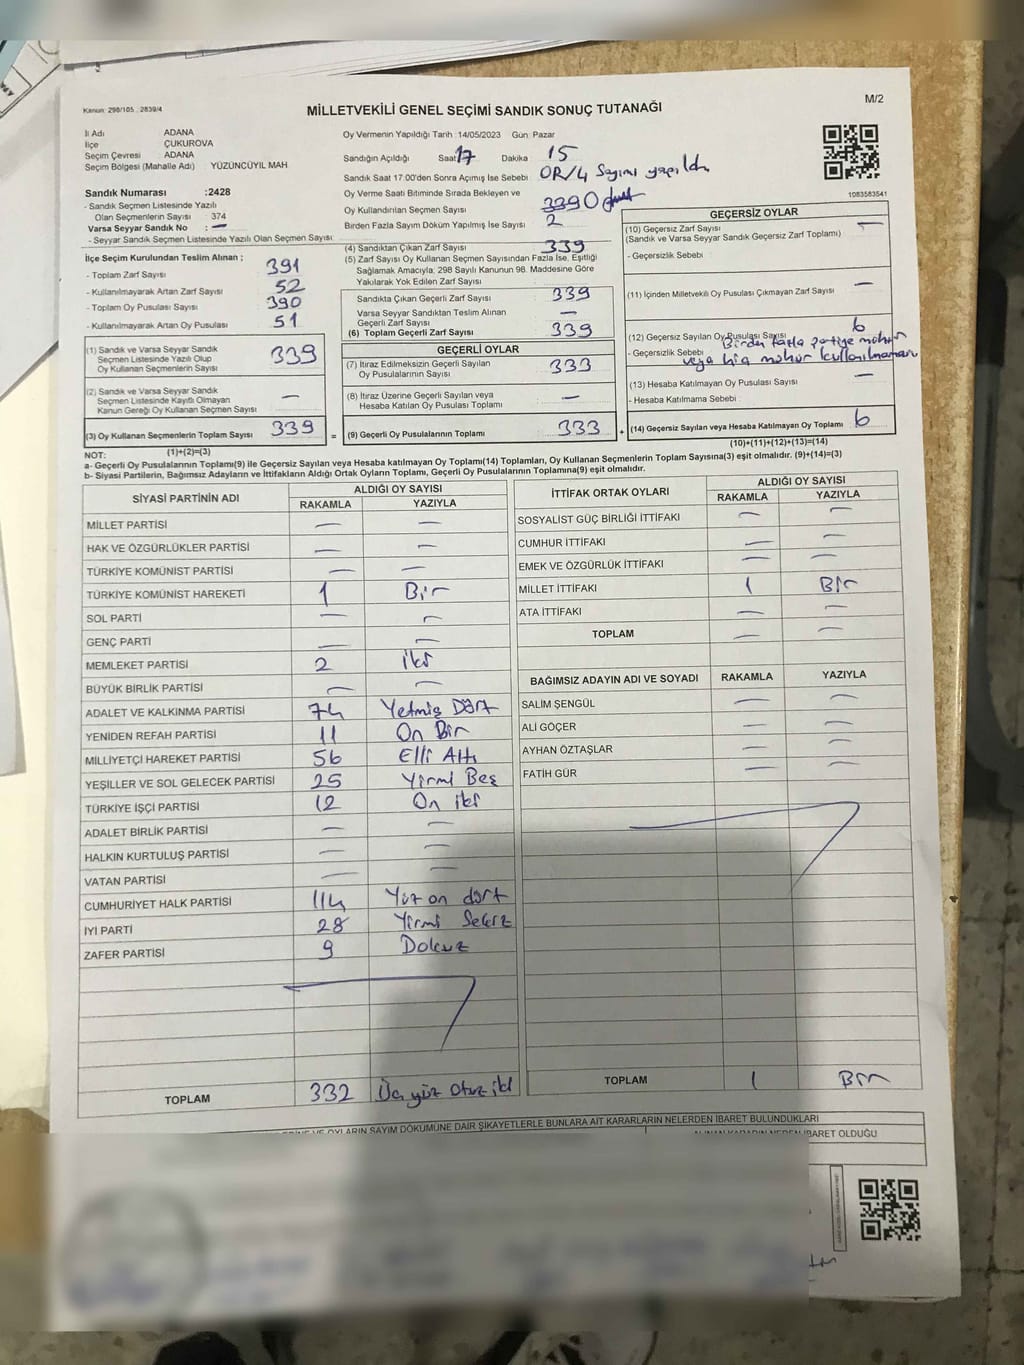 Kanun: 298/105 , 2839/4
MİLLETVEKİLİ GENEL SEÇİMİ SANDIK SONUÇ TUTANAĞI
M/2
İl Adı ADANA
İlçe ÇUKUROVA
Seçim Çevresi ADANA
Seçim Bölgesi (Mahalle Adı) YÜZÜNCÜYIL MAH
Sandık Numarası :2428
- Sandık Seçmen Listesinde Yazılı
Olan Seçmenlerin Sayısı 374
Varsa Seyyar Sandık No : —
- Seyyar Sandık Seçmen Listesinde Yazılı Olan Seçmen Sayısı
Oy Vermenin Yapıldığı Tarih :14/05/2023 Gün: Pazar
Sandığın Açıldığı Saat 17 Dakika 15
Sandık Saat 17:00'den Sonra Açımış İse Sebebi OR/4 Sayımı yapıldı
Oy Verme Saati Bitiminde Sırada Bekleyen ve
Oy Kullandırılan Seçmen Sayısı 339 0
Birden Fazla Sayım Döküm Yapılmış İse Sayısı 2
1083583541
İlçe Seçim Kurulundan Teslim Alınan ;
- Toplam Zarf Sayısı 391
- Kullanılmayarak Artan Zarf Sayısı 52
- Toplam Oy Pusulası Sayısı 390
- Kullanılmayarak Artan Oy Pusulası 51
(1) Sandık ve Varsa Seyyar Sandık
Seçmen Listesinde Yazılı Olup
Oy Kullanan Seçmenlerin Sayısı 339
(2) Sandık ve Varsa Seyyar Sandık
Seçmen Listesinde Kayıtlı Olmayan
Kanun Gereği Oy Kullanan Seçmen Sayısı —
(3) Oy Kullanan Seçmenlerin Toplam Sayısı 339 =
(1)+(2)=(3)
(4) Sandıktan Çıkan Zarf Sayısı 339
(5) Zarf Sayısı Oy Kullanan Seçmen Sayısından Fazla İse, Eşitliği
Sağlamak Amacıyla, 298 Sayılı Kanunun 98. Maddesine Göre
Yakılarak Yok Edilen Zarf Sayısı
Sandıkta Çıkan Geçerli Zarf Sayısı 339
Varsa Seyyar Sandıktan Teslim Alınan
Geçerli Zarf Sayısı —
(6) Toplam Geçerli Zarf Sayısı 339
GEÇERLİ OYLAR
(7) İtiraz Edilmeksizin Geçerli Sayılan
Oy Pusulalarının Sayısı 333
(8) İtiraz Üzerine Geçerli Sayılan veya
Hesaba Katılan Oy Pusulası Toplamı —
(9) Geçerli Oy Pusulalarının Toplamı 333 +
GEÇERSİZ OYLAR
(10) Geçersiz Zarf Sayısı —
(Sandık ve Varsa Seyyar Sandık Geçersiz Zarf Toplamı)
- Geçersizlik Sebebi
(11) İçinden Milletvekili Oy Pusulası Çıkmayan Zarf Sayısı —
(12) Geçersiz Sayılan Oy Pusulası Sayısı 6
- Geçersizlik Sebebi Birden fazla partiye mühür
veya hiç mühür kullanılmaması
(13) Hesaba Katılmayan Oy Pusulası Sayısı —
- Hesaba Katılmama Sebebi
(14) Geçersiz Sayılan veya Hesaba Katılmayan Oy Toplamı 6
(10)+(11)+(12)+(13)=(14)
NOT:
a- Geçerli Oy Pusulalarının Toplamı(9) ile Geçersiz Sayılan veya Hesaba katılmayan Oy Toplamı(14) Toplamları, Oy Kullanan Seçmenlerin Toplam Sayısına(3) eşit olmalıdır. (9)+(14)=(3)
b- Siyasi Partilerin, Bağımsız Adayların ve İttifakların Aldığı Ortak Oyların Toplamı, Geçerli Oy Pusulalarının Toplamına(9) eşit olmalıdır.
SİYASİ PARTİNİN ADI ALDIĞI OY SAYISI
RAKAMLA YAZIYLA
MİLLET PARTİSİ — —
HAK VE ÖZGÜRLÜKLER PARTİSİ — —
TÜRKİYE KOMÜNİST PARTİSİ — —
TÜRKİYE KOMÜNİST HAREKETİ 1 Bir
SOL PARTİ — —
GENÇ PARTİ — —
MEMLEKET PARTİSİ 2 iki
BÜYÜK BİRLİK PARTİSİ — —
ADALET VE KALKINMA PARTİSİ 74 Yetmiş Dört
YENİDEN REFAH PARTİSİ 11 On Bir
MİLLİYETÇİ HAREKET PARTİSİ 56 Elli Altı
YEŞİLLER VE SOL GELECEK PARTİSİ 25 Yirmi Beş
TÜRKİYE İŞÇİ PARTİSİ 12 On iki
ADALET BİRLİK PARTİSİ — —
HALKIN KURTULUŞ PARTİSİ — —
VATAN PARTİSİ — —
CUMHURİYET HALK PARTİSİ 114 Yüz on dört
İYİ PARTİ 28 Yirmi Sekiz
ZAFER PARTİSİ 9 Dokuz
TOPLAM 332 Üç yüz Otuz iki
İTTİFAK ORTAK OYLARI ALDIĞI OY SAYISI
RAKAMLA YAZIYLA
SOSYALİST GÜÇ BİRLİĞİ İTTİFAKI — —
CUMHUR İTTİFAKI — —
EMEK VE ÖZGÜRLÜK İTTİFAKI — —
MİLLET İTTİFAKI 1 Bir
ATA İTTİFAKI — —
TOPLAM — —
BAĞIMSIZ ADAYIN ADI VE SOYADI RAKAMLA YAZIYLA
SALİM ŞENGÜL — —
ALİ GÖÇER — —
AYHAN ÖZTAŞLAR — —
FATİH GÜR — —
TOPLAM 1 Bir
OYLARIN SAYIM DÖKÜMÜNE DAİR ŞİKAYETLERLE BUNLARA AİT KARARLARIN NELERDEN İBARET BULUNDUKLARI
İBARET OLDUĞU